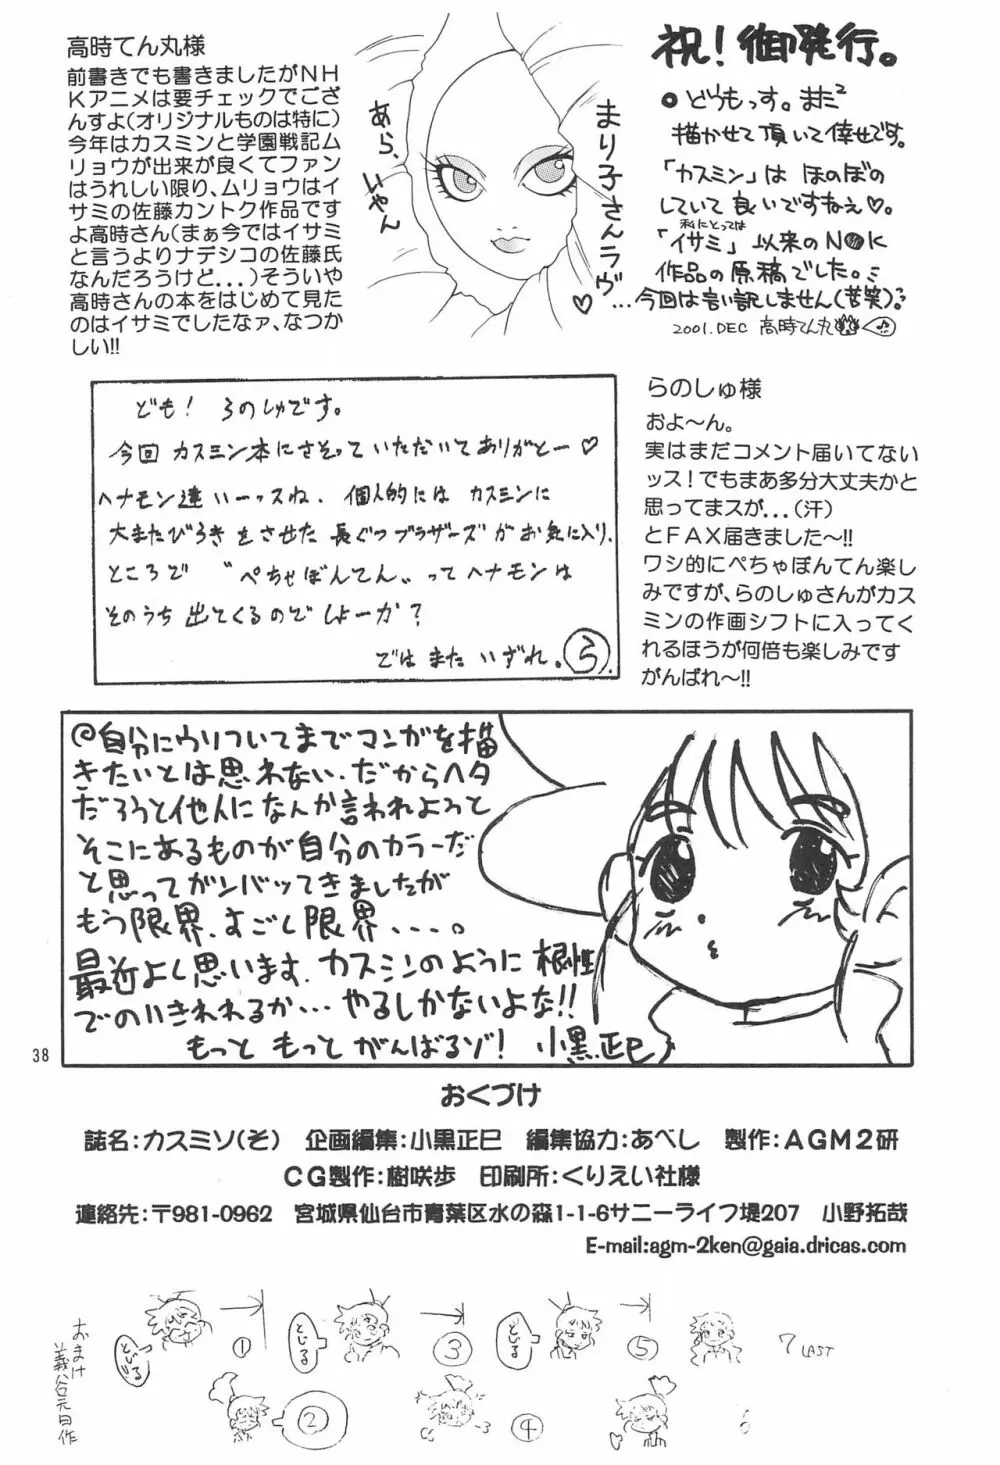 高時てん丸様
前書きでも書きましたがNH
Kアニメは要チェックでござ
んすよ(オリジナルものは特に)
今年はカスミンと学園戦記ム
リョウが出来が良くてファン
はうれしい限り、ムリョウはイ
サミの佐藤カントク作品です
よ高時さん(まぁ今ではイサミ
と言うよりナデシコの佐藤氏
なんだろうけど...)そういや
高時さんの本をはじめて見た
のはイサミでしたなァ、なつか
しい!!
あら、
いやん
まり子さんラヴ♡
祝!御発行。
●どうもっす。また²
描かせて頂いて倖せです。
「カスミン」は ほのぼの
していて良いですねぇ♡。
私にとっては
「イサミ」以来のN●K
作品の原稿でした。
...今回は言い訳しません(苦笑)
2001.DEC 高時てん丸
ども! らのしゅです。
今回 カスミン本にさそっていただいてありがとー♡
ヘナモン達いーっスね、個人的には カスミンに
大またびらきをさせた 長ぐつブラザーズがお気に入り。
ところで “ぺちゃぽんてん„ってヘナモンは
そのうち出てくるのでしょーか?
ではまたいずれ。ら.
らのしゅ様
およ〜ん。
実はまだコメント届いてない
ッス!でもまあ多分大丈夫かと
思ってまスが...(汗)
とFAX届きました〜!!
ワシ的にぺちゃぽんてん楽し
みですが、らのしゅさんがカス
ミンの作画シフトに入ってく
れるほうが何倍も楽しみです
がんばれ〜!!
@自分にウソついてまでマンガを描
きたいとは思わない。だからヘタ
だろうと他人になんか言われようと
そこにあるものが自分のカラーだ
と思ってガンバッてきましたが
もう限界、すごし限界....。
最近よし思います。カスミンのように根性
でのりきれれるか...やるしかないよな!!
もっと もっと がんばるゾ! 小黒正巳
38
おくづけ
誌名:カスミソ(そ) 企画編集:小黒正巳 編集協力:あべし 製作:AGM2研
CG製作:樹咲歩 印刷所:くりえい社様
連絡先:〒981-0962 宮城県仙台市青葉区水の森1-1-6サニーライフ堤207 小野拓哉
E-mail:agm-2ken@gaia.dricas.com
おまけ
義谷元日作
といれる
①
といれる
③
といれる
⑤
7 LAST
②
④
6